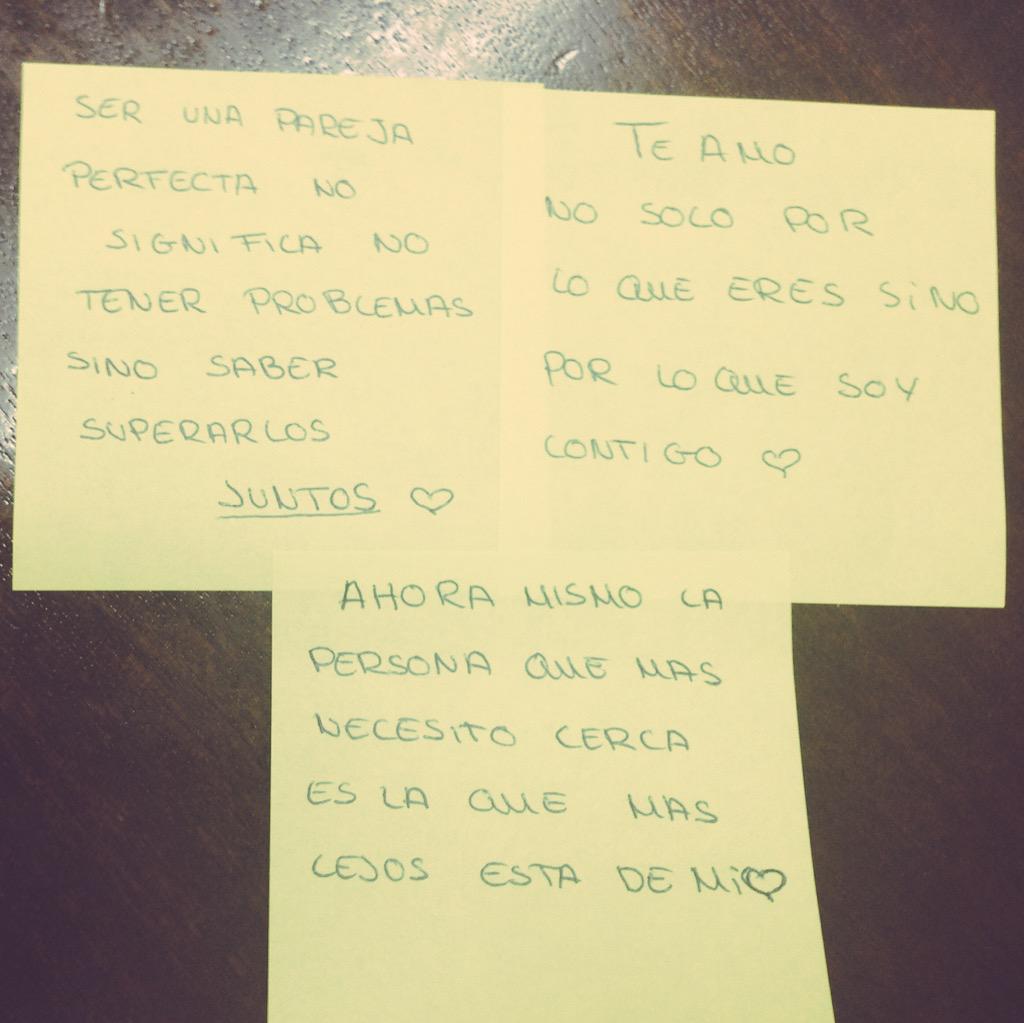 SER UNA PAREJA
PERFECTA NO
SIGNIFICA NO
TENER PROBLEMAS
SINO SABER
SUPERARLOS
JUNTOS ♡
TE AMO
NO SOLO POR
LO QUE ERES SiNO
POR LO QUE SOY
CONTIGO ♡
AHORA MISMO LA
PERSONA QUE MAS
NECESITO CERCA
ES LA QUE MAS
LEJOS ESTA DE Mi♡